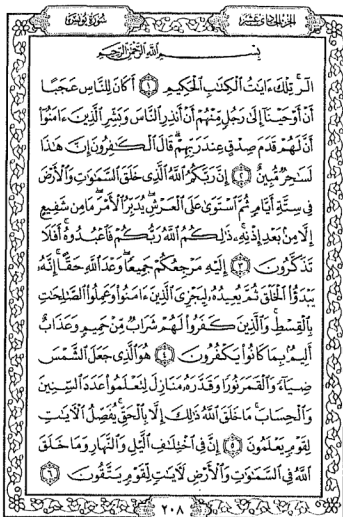 الجزء الحادي عشر
سورة يونس
بِسْمِ اللَّهِ الرَّحْمَٰنِ الرَّحِيمِ
الٓر تِلْكَ ءَايَٰتُ ٱلْكِتَٰبِ ٱلْحَكِيمِ ١ أَكَانَ لِلنَّاسِ عَجَبًا
أَنْ أَوْحَيْنَآ إِلَىٰ رَجُلٍ مِّنْهُمْ أَنْ أَنذِرِ ٱلنَّاسَ وَبَشِّرِ ٱلَّذِينَ ءَامَنُوٓا۟
أَنَّ لَهُمْ قَدَمَ صِدْقٍ عِندَ رَبِّهِمْ ۗ قَالَ ٱلْكَٰفِرُونَ إِنَّ هَٰذَا
لَسَٰحِرٌ مُّبِينٌ ٢ إِنَّ رَبَّكُمُ ٱللَّهُ ٱلَّذِى خَلَقَ ٱلسَّمَٰوَٰتِ وَٱلْأَرْضَ
فِى سِتَّةِ أَيَّامٍ ثُمَّ ٱسْتَوَىٰ عَلَى ٱلْعَرْشِ ۖ يُدَبِّرُ ٱلْأَمْرَ ۖ مَا مِن شَفِيعٍ
إِلَّا مِنۢ بَعْدِ إِذْنِهِۦ ۚ ذَٰلِكُمُ ٱللَّهُ رَبُّكُمْ فَٱعْبُدُوهُ ۚ أَفَلَا
تَذَكَّرُونَ ٣ إِلَيْهِ مَرْجِعُكُمْ جَمِيعًا ۖ وَعْدَ ٱللَّهِ حَقًّا ۚ إِنَّهُۥ
يَبْدَؤُا۟ ٱلْخَلْقَ ثُمَّ يُعِيدُهُۥ لِيَجْزِىَ ٱلَّذِينَ ءَامَنُوا۟ وَعَمِلُوا۟ ٱلصَّٰلِحَٰتِ
بِٱلْقِسْطِ ۚ وَٱلَّذِينَ كَفَرُوا۟ لَهُمْ شَرَابٌ مِّنْ حَمِيمٍ وَعَذَابٌ
أَلِيمٌۢ بِمَا كَانُوا۟ يَكْفُرُونَ ٤ هُوَ ٱلَّذِى جَعَلَ ٱلشَّمْسَ
ضِيَآءً وَٱلْقَمَرَ نُورًا وَقَدَّرَهُۥ مَنَازِلَ لِتَعْلَمُوا۟ عَدَدَ ٱلسِّنِينَ
وَٱلْحِسَابَ ۚ مَا خَلَقَ ٱللَّهُ ذَٰلِكَ إِلَّا بِٱلْحَقِّ ۚ يُفَصِّلُ ٱلْءَايَٰتِ
لِقَوْمٍ يَعْلَمُونَ ٥ إِنَّ فِى ٱخْتِلَٰفِ ٱلَّيْلِ وَٱلنَّهَارِ وَمَا خَلَقَ
ٱللَّهُ فِى ٱلسَّمَٰوَٰتِ وَٱلْأَرْضِ لَءَايَٰتٍ لِّقَوْمٍ يَتَّقُونَ ٦
٢٠٨